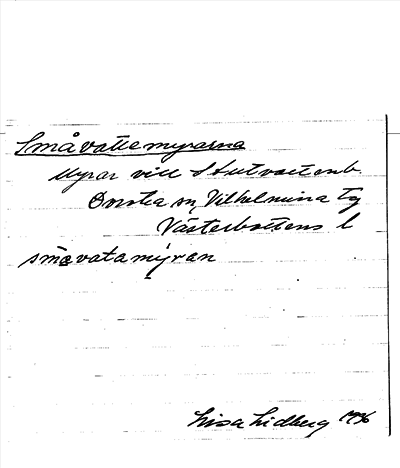 Småvattemyrarna
Myrar vid Stutvattenb.
Orsika sn, Vilhelmina tg
Västerbottens l
småvatamýran
Lisa Lidberg 1936